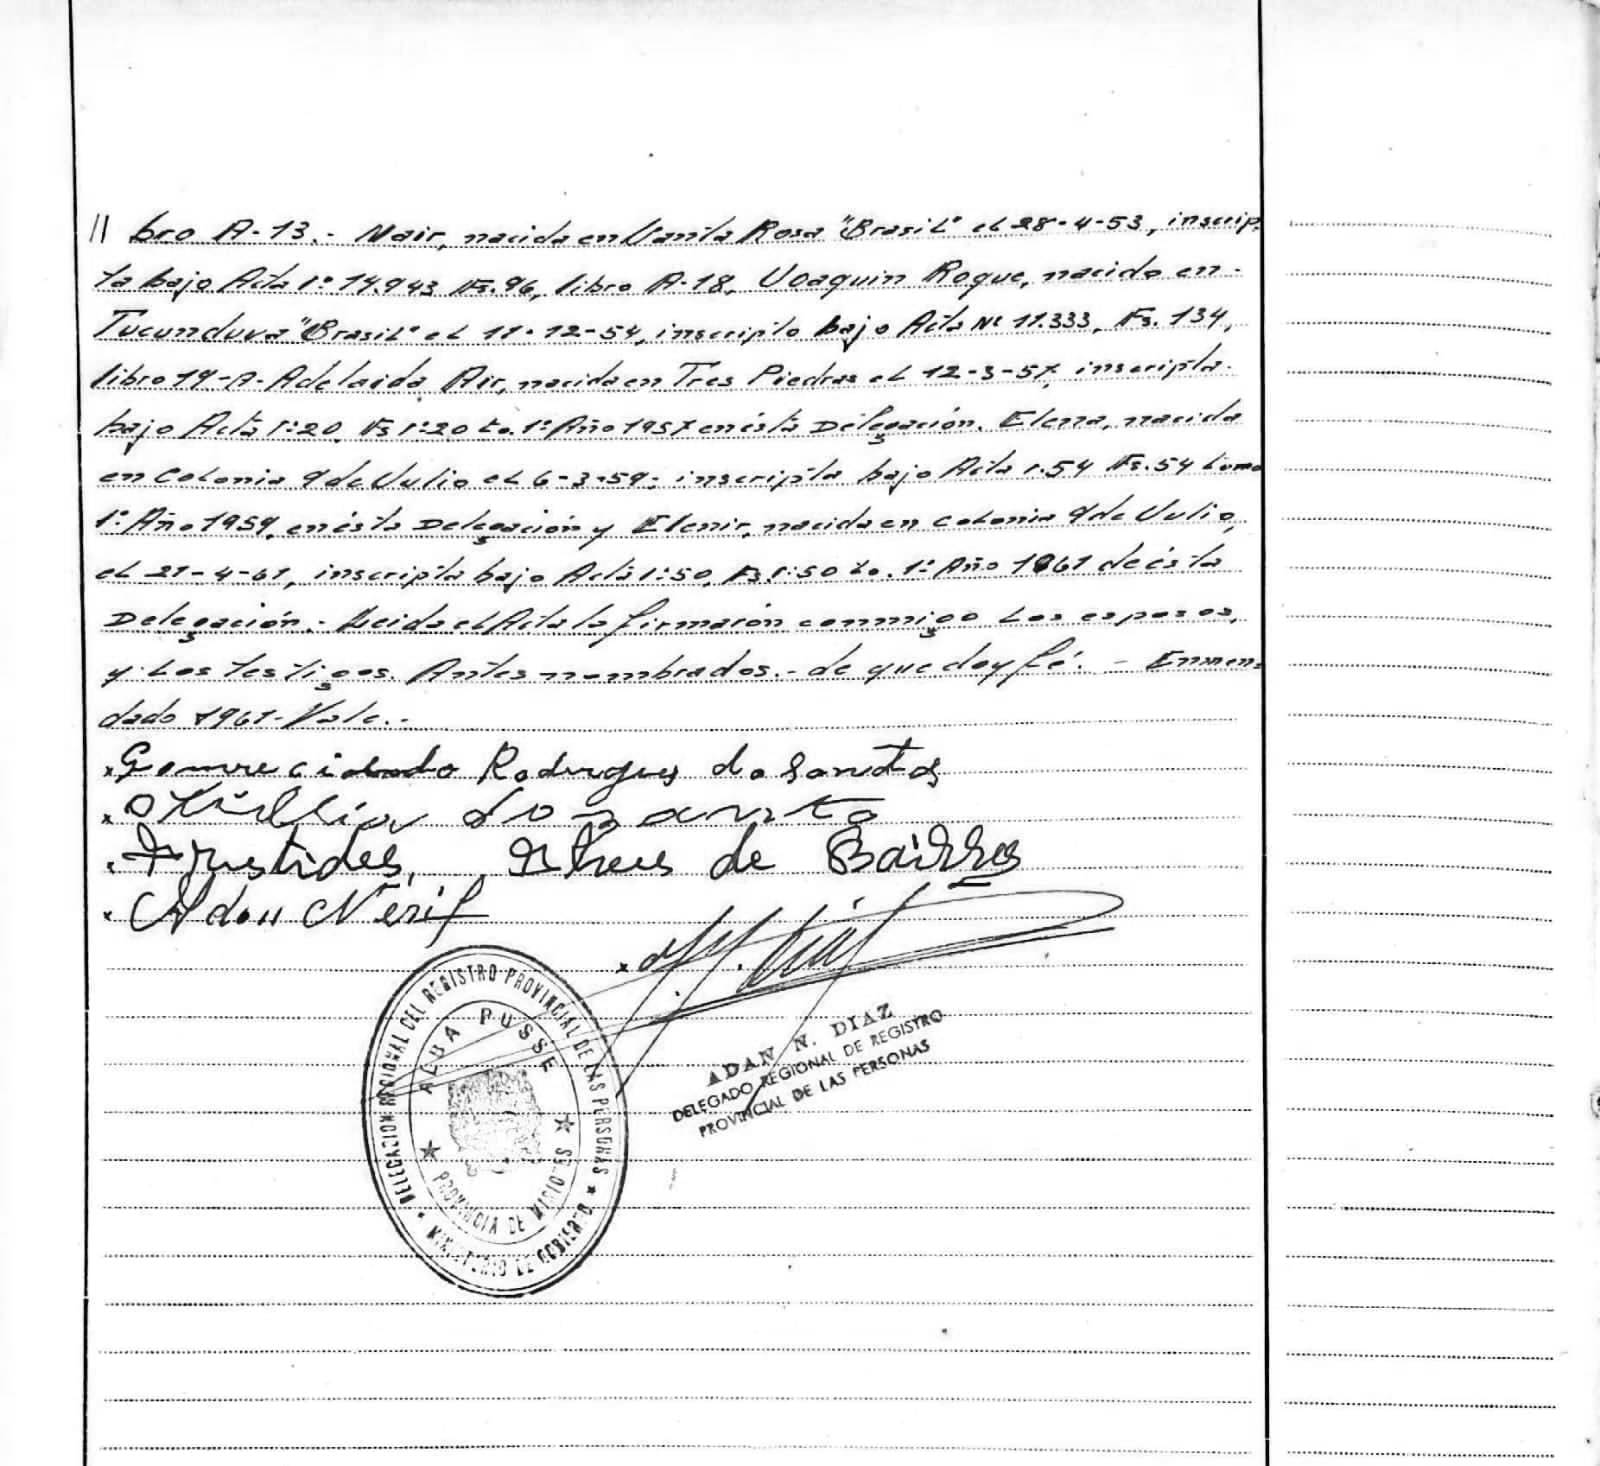 // bro A-13.- Nair, nacida en Santa Rosa "Brasil" el 28-4-53, inscrip
ta bajo Acta 1º 14.943 Fs. 96, libro A-18, Joaquin Roque, nacido en -
Tucunduva "Brasil" el 11-12-54, inscripto bajo Acta Nº 11.333, Fs. 134,
libro 19-A- Adelaida Air, nacida en Tres Piedras el 12-3-57, inscripta-
bajo Acta 1:20, Fs 1:20 to. 1º Año 1957 en ésta Delegación. Elena, nacida
en Colonia 9 de Julio el 6-3-59; inscripta bajo Acta 1.54 Fs. 54 tomo
1º Año 1959, en ésta Delegación y Elenir, nacida en Colonia 9 de Julio,
el 21-4-61, inscripta bajo Acta 1:50, Fs. 1:50 to. 1º Año 1961 de ésta
Delegación.- Leida el Acta la firmarón conmigo los esposos,
y los testigos. Antes nombrados.- de que doy fé. - Enmen
dado 1961- Vale.-
Rodrigues do Santos
de Bairros
Adan
ADAN N. DIAZ
DELEGADO REGIONAL DE REGISTRO
PROVINCIAL DE LAS PERSONAS
DELEGACION REGIONAL DEL REGISTRO PROVINCIAL DE LAS PERSONAS
ALBA POSSE
PROVINCIA DE MISIONES
MINISTERIO DE GOBIERNO